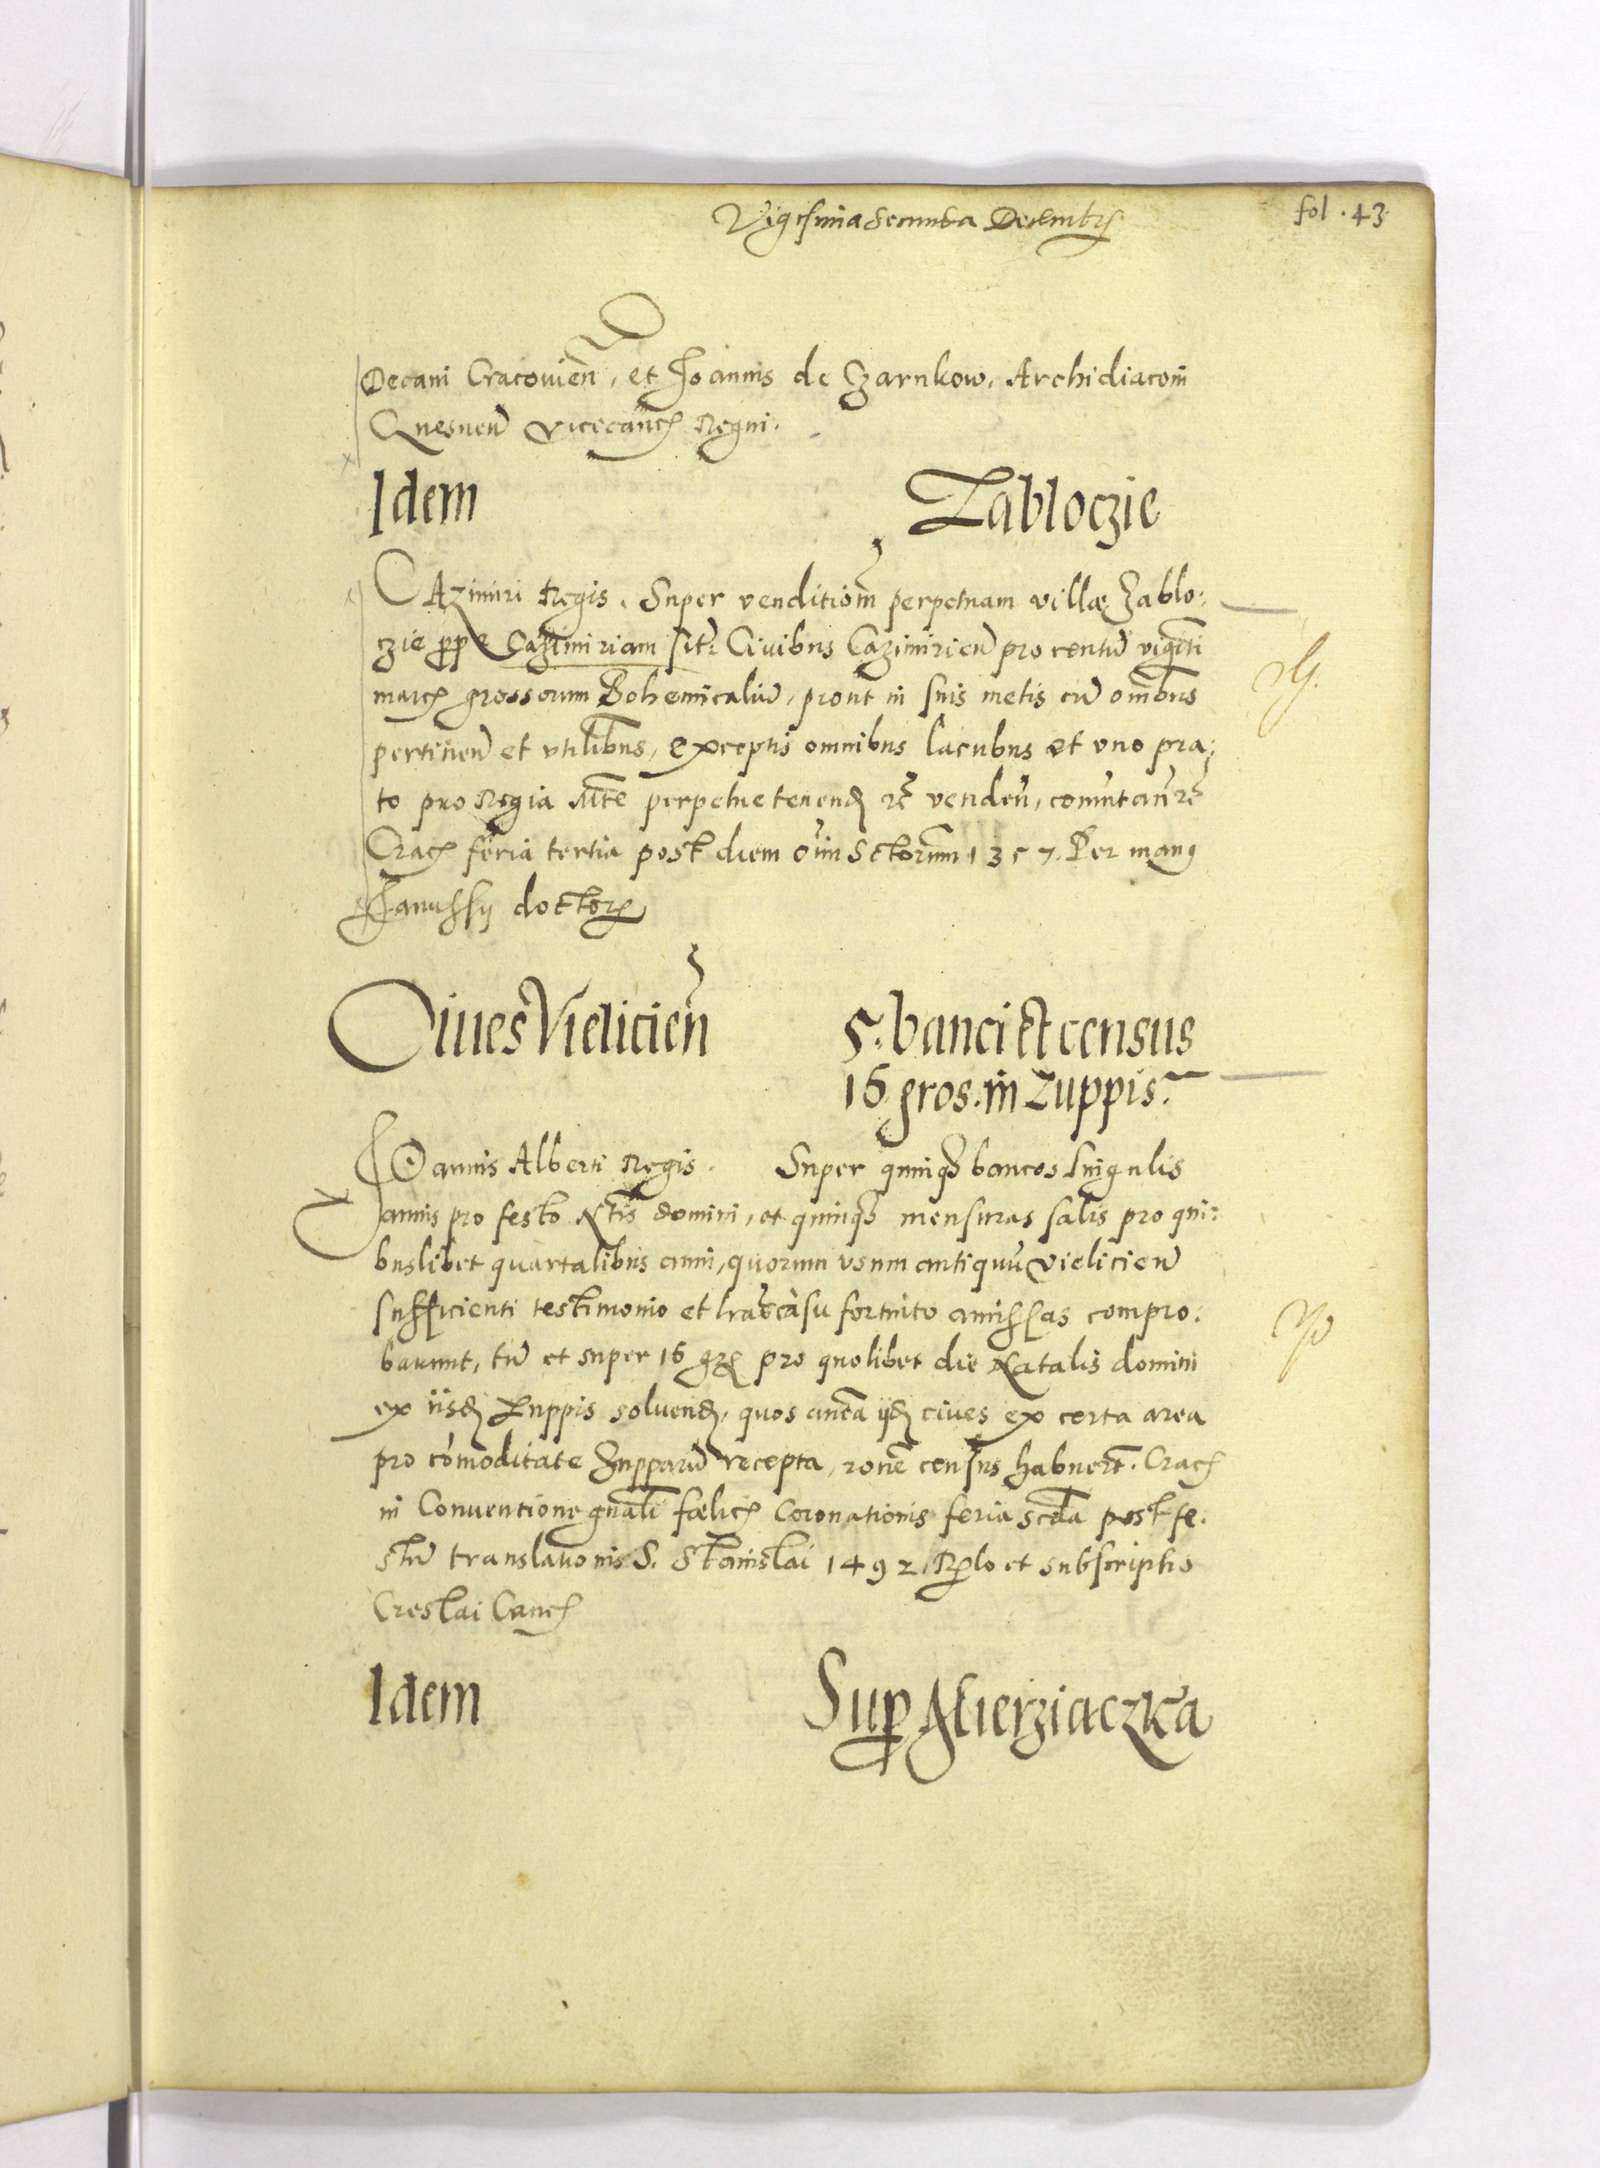 Vigesima Secunda Decembris
fol. 43
Decani Cracouień, et Joannis de Czarnkow, Archidiaconi
Gnesneñ Vicecancĕ Regni.
Idem Zabloczie
CAzimiri Regis. Super venditionē perpetuam villæ Zablo:
czie prope Cazimiriam sitē Ciuibus Cazimirieñ pro centū viginti
marcĕ grossorum Bohemicaliū, prout in suis metis cū omībus
pertineñ et vtilibus, exceptis omnibus lacubus et vno pra:
to pro Regia Mte perpetue tenend
Cracĕ feria tertia post diem oīm Sctorum 1357. Per manꝰ
Janussij doctorĕ
Ciues Vielicień 5. banci et census
16 gros. in Zuppis.
JOannis Alberti Regis. Super quinqȝ bancos singulis
annis pro festo Ntis domini, et quinqȝ mensuras salis pro qui:
buslibet quartalibus anni, quorum vsum antiquū Vielicieñ
sufficienti testimonio et lras casu fortuito amissas compro:
barunt, tū et super 16 grĕ pro quolibet die Natalis domini
ex iisdē Zuppis soluend, quos antea ijdē ciues ex certa area
pro cōmoditate Zupparū recepta, rone census habuerūt. Cracĕ
in Conuentione gnali fœlicĕ Coronationis feria scda post fe:
stū translationis S. Stanislai 1492. Rĕlo et subscriptio
Creslai Cancĕ
Idem Super Mierziaczka